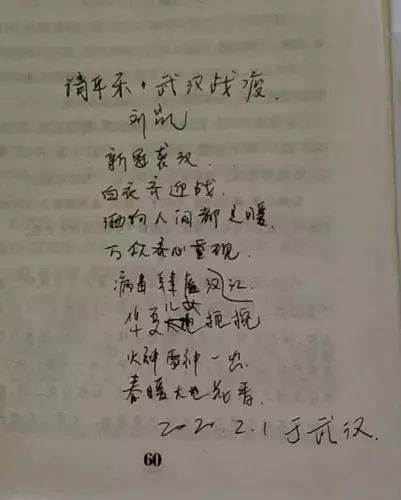 清平乐·武汉战疫.
刘凯
新冠袭汉.
白衣齐迎战.
洒向人间都是暖.
万众齐心重现.
病毒肆虐汉江
华夏儿女
火神雷神一出.
春暖大地花香.
2020.2.1于武汉.
60